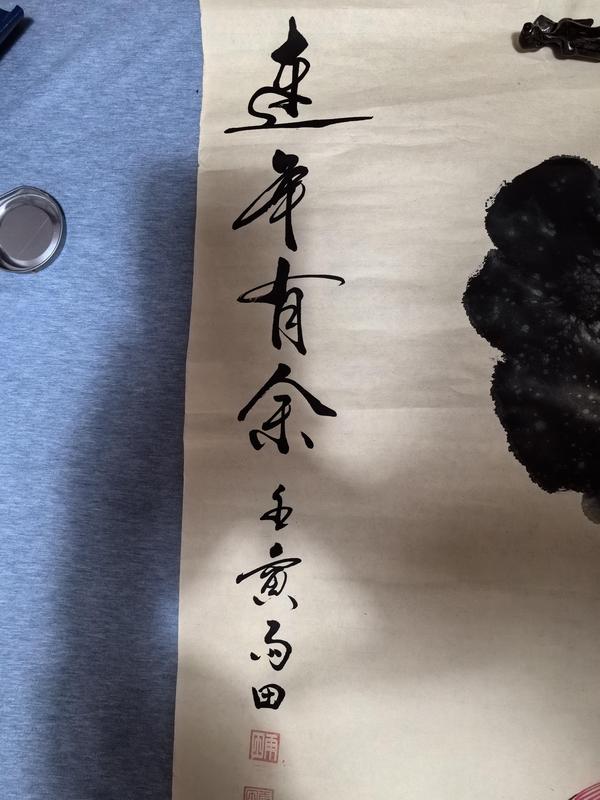 连年有余壬寅雨田